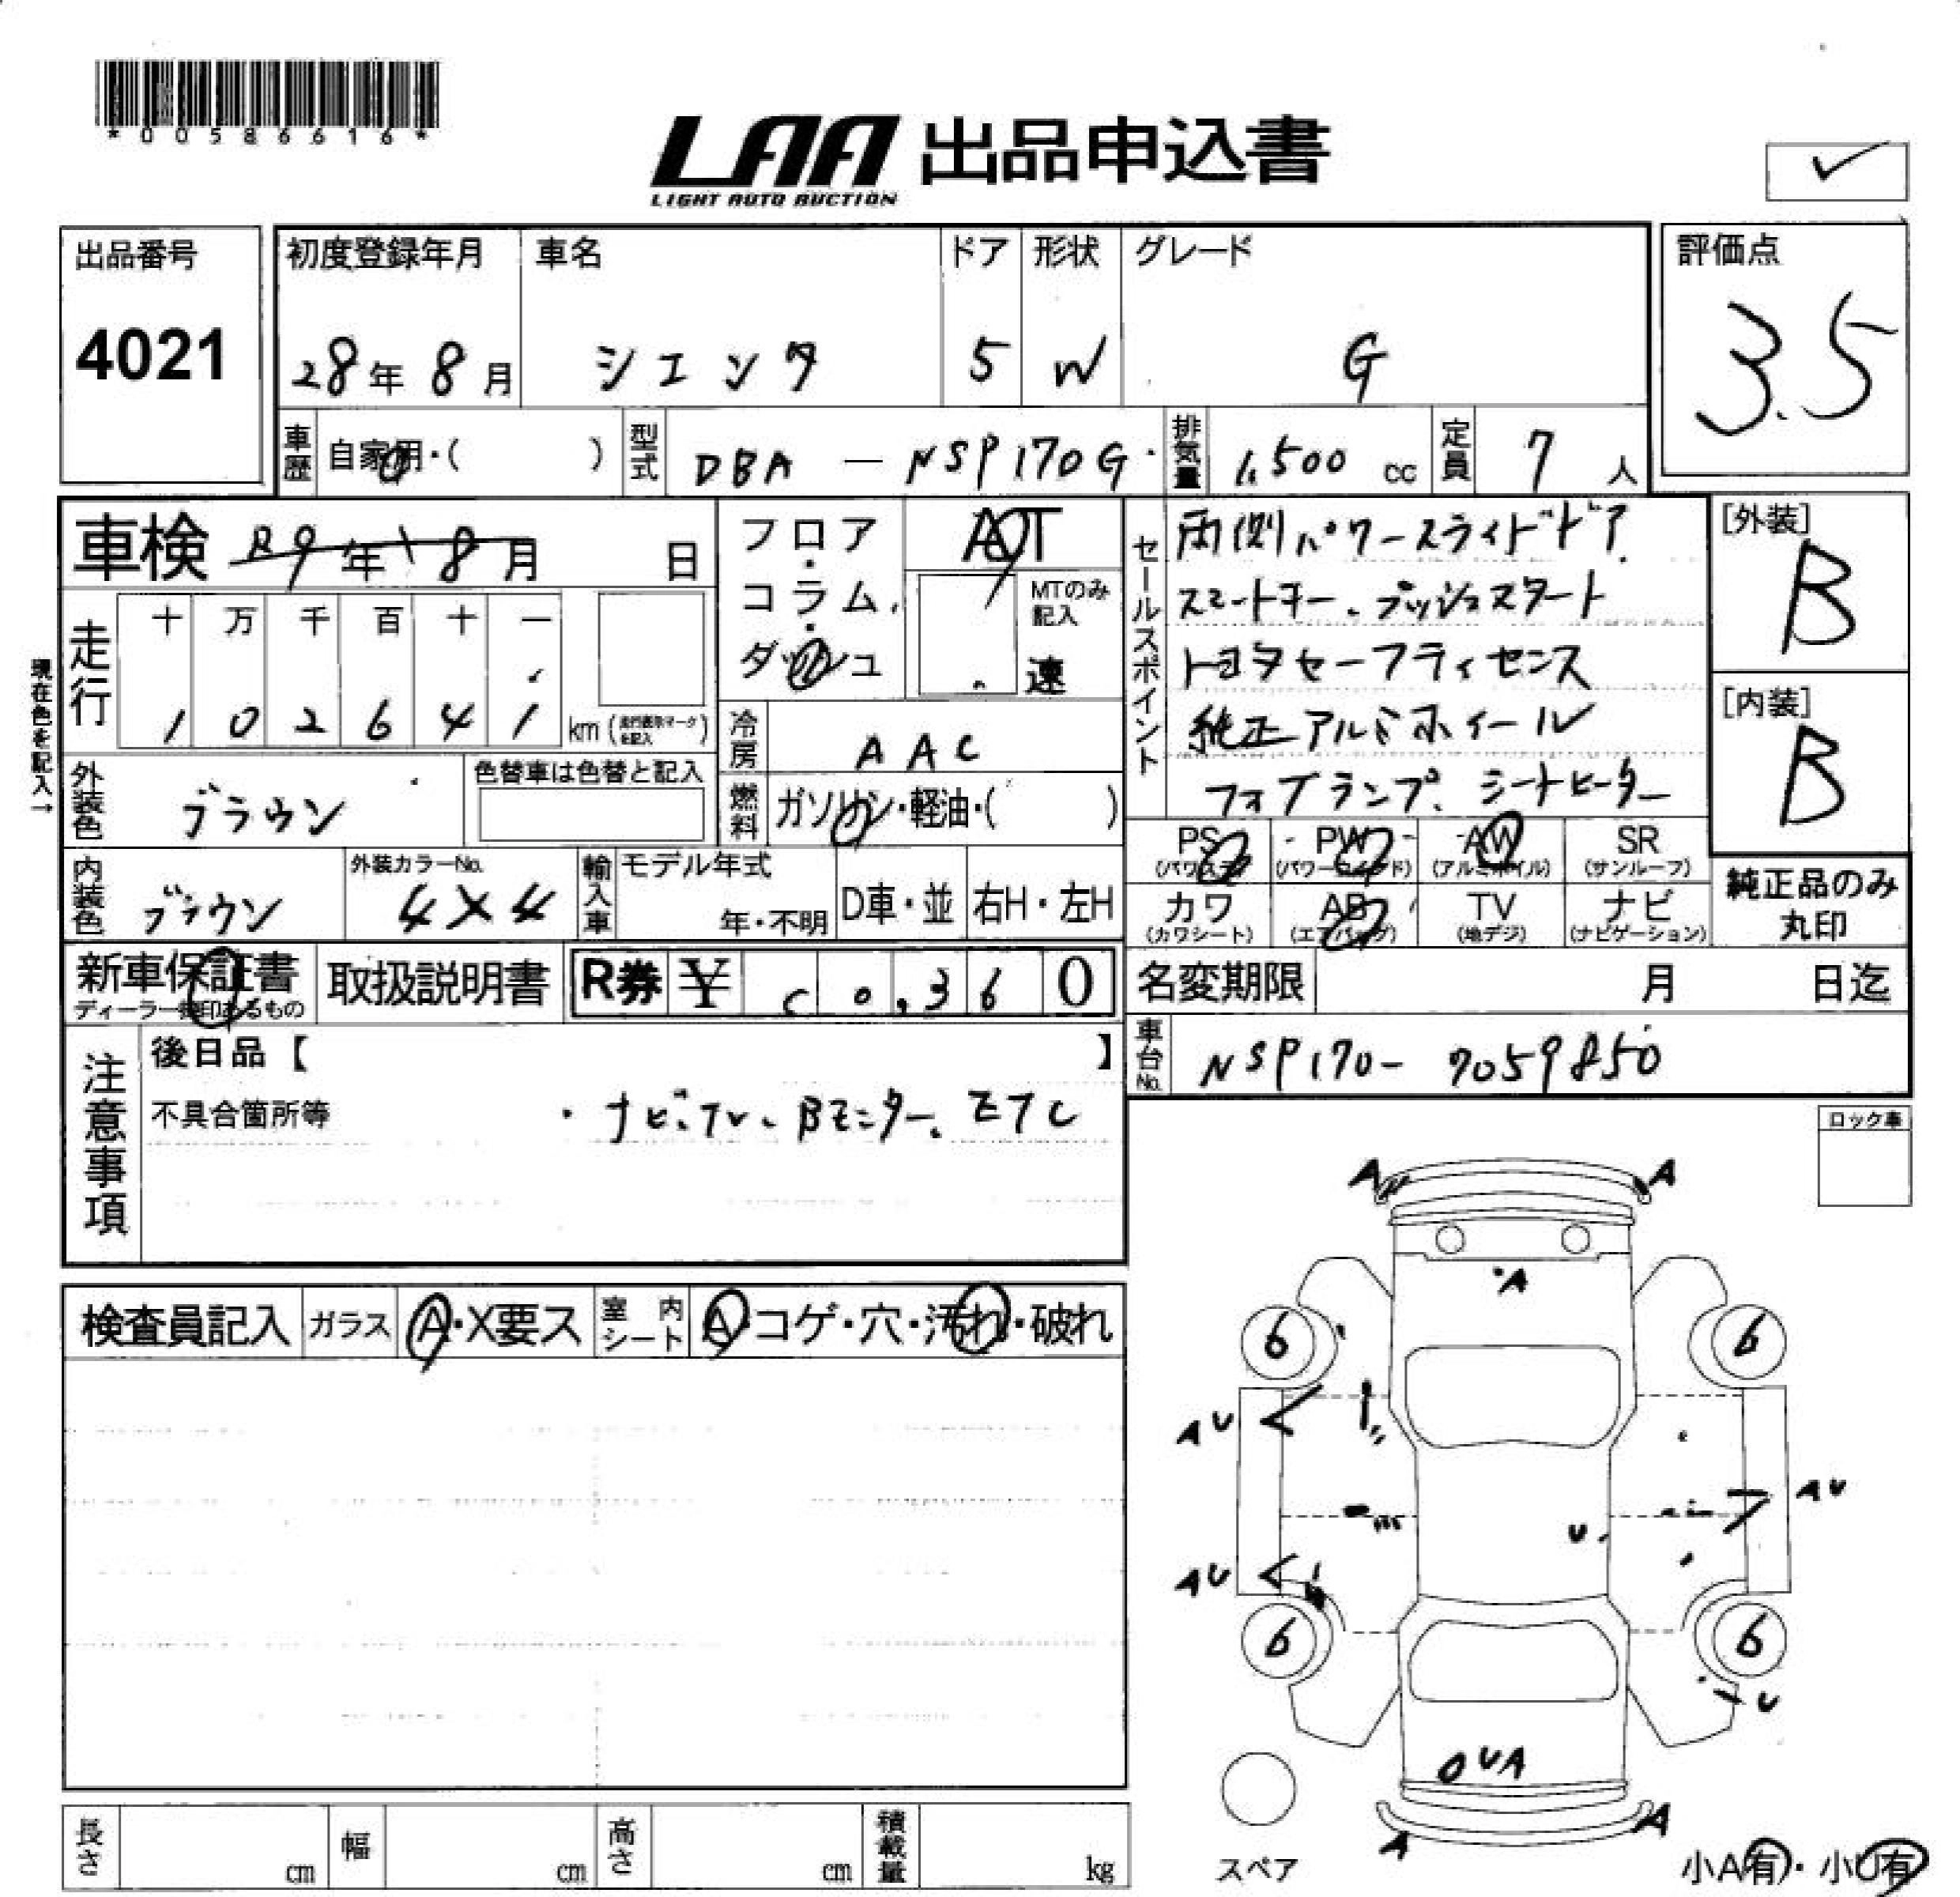 *00586616*
LAA 出品申込書
LIGHT AUTO AUCTION
出品番号
4021
初度登録年月
28年 8月
車名
シエンタ
ドア
5
形状
W
グレード
G
評価点
3.5
車歴
自家用・( )
型式
DBA — NSP170G
排気量
1,500 cc
定員
7 人
車検 R9年 8月 日
現在色を記入→
走行
十 万 千 百 十 一
1 0 2 6 4 1
km (走行表示マークを記入)
フロア・コラム・ダッシュ
AT
MTのみ記入
速
冷房
AAC
燃料
ガソリン・軽油・( )
外装色
ブラウン
色替車は色替と記入
内装色
ブラウン
外装カラーNo.
4X4
輸入車
モデル年式
年・不明
D車・並
右H・左H
セールスポイント
両側パワースライドドア
スマートキー、プッシュスタート
トヨタセーフティセンス
純正アルミホイール
フォグランプ、シートヒーター
[外装]
B
[内装]
B
PS
(パワステ)
PW
(パワーウインド)
AW
(アルミホイル)
SR
(サンルーフ)
カワ
(カワシート)
AB
(エアバッグ)
TV
(地デジ)
ナビ
(ナビゲーション)
純正品のみ
丸印
新車保証書
ディーラー捺印あるもの
取扱説明書
R券 ¥ 0,36 0
名変期限 月 日迄
車台No.
NSP170- 7059850
注意事項
後日品【 】
不具合箇所等
・ナビ、TV、Bモニター、ETC
ロック車
検査員記入
ガラス
A・X要ス
室内シート
A・コゲ・穴・汚れ・破れ
A A
A
6 6
AU
AU
U
AU
6 6
U
UA
A A
スペア
小A有・小U有
長さ cm
幅 cm
高さ cm
積載量 kg